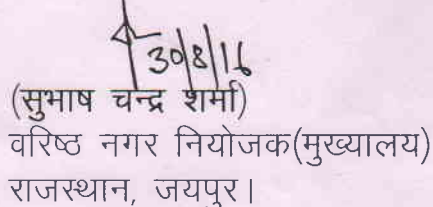 30/8/16
(सुभाष चन्द्र शर्मा)
वरिष्ठ नगर नियोजक(मुख्यालय)
राजस्थान, जयपुर।